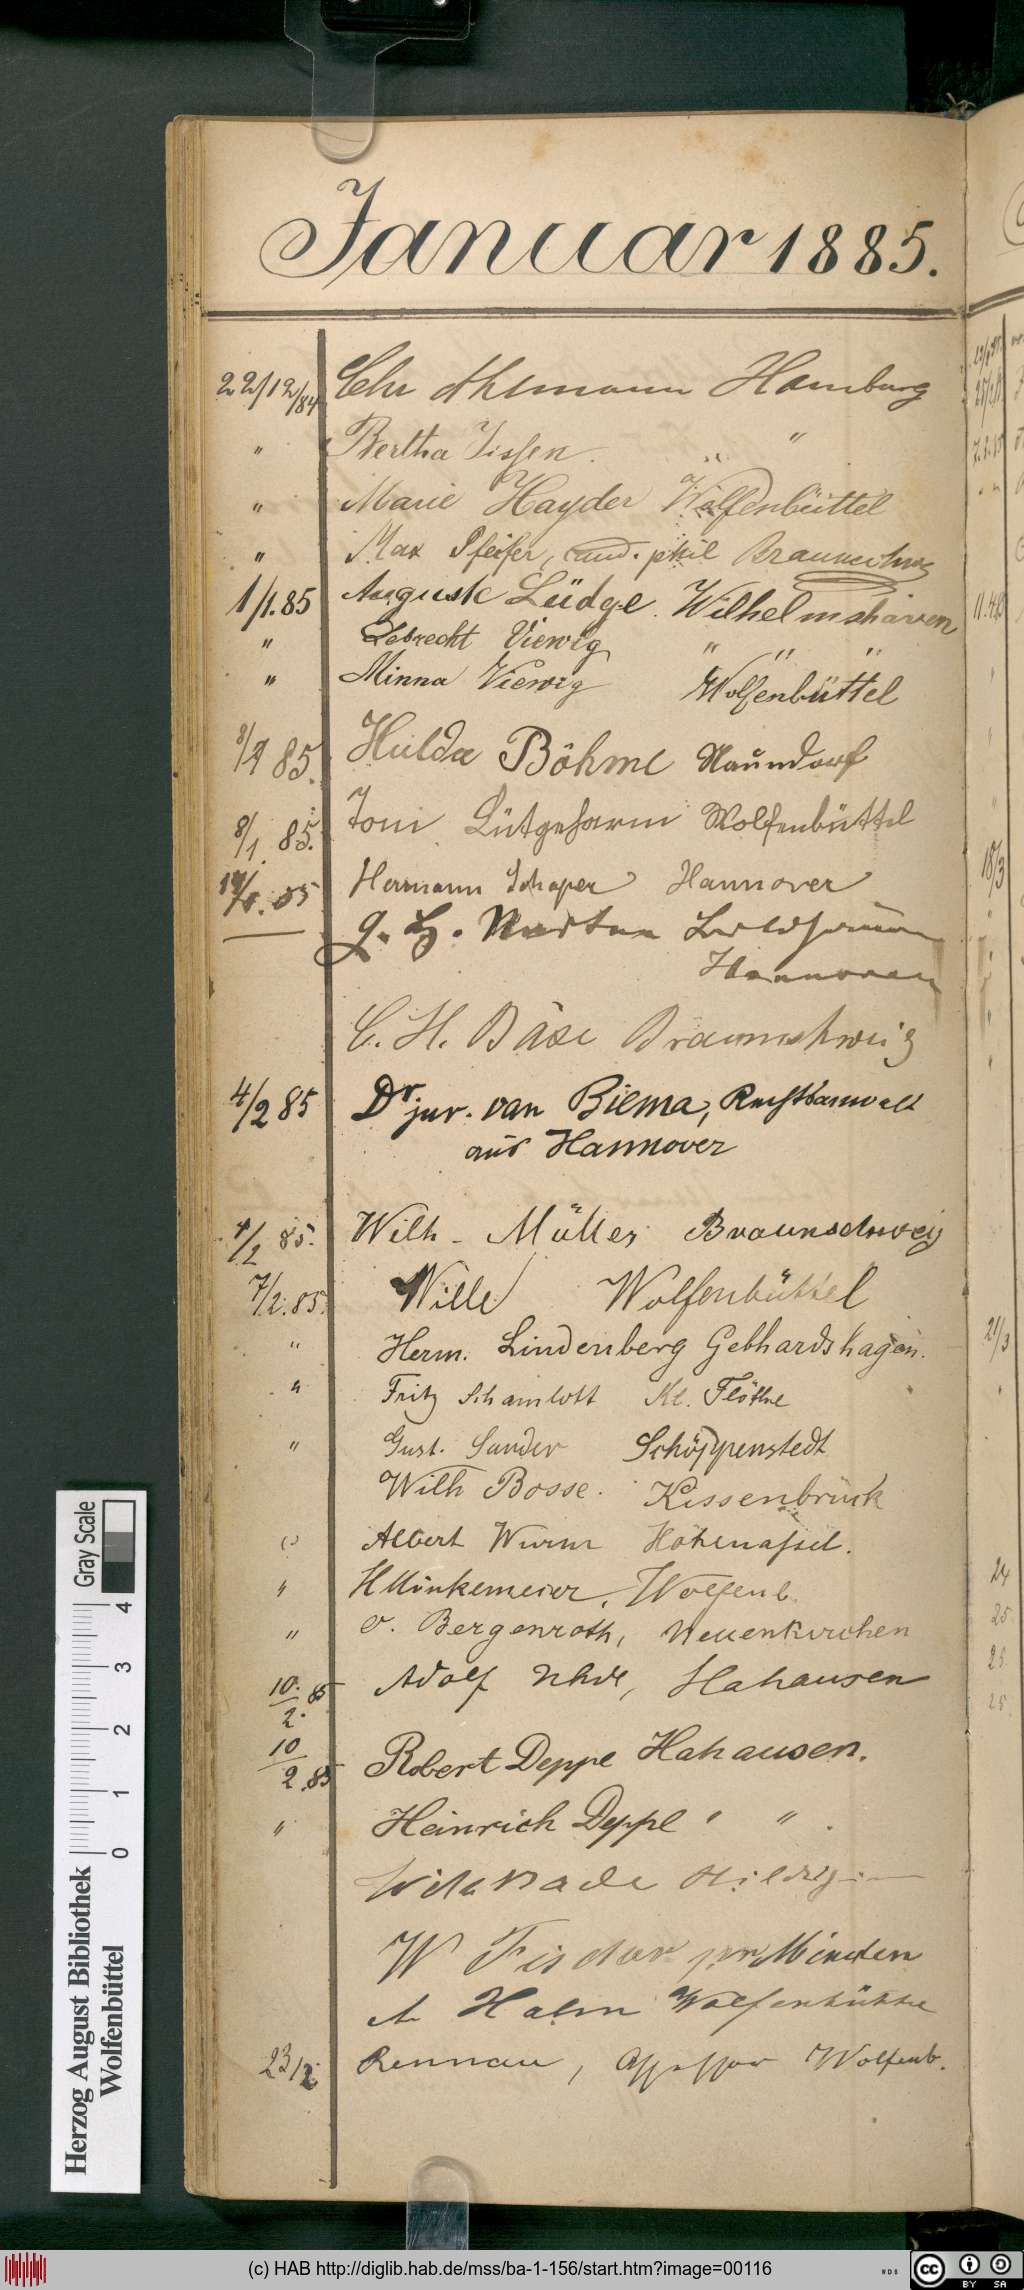 Januar 1885.
22/12/84 Chr Ahlmann Hamburg
" Bertha Jissen. "
" Marie Hayder Wolfenbüttel
" Max Pfeifer, cand. phil Braunschw
1/1.85 Auguste Lüdge. Wilhelmshaven
" Lebrecht Viewig " " "
" Minna Viewig Wolfenbüttel
8/1 85. Hulda Böhme Naundorf
8/1. 85. Toni Lütgeharm Wolfenbüttel
85 Hermann Schaper Hannover
Hannover
C. H. Bäse Braunschweig
4/2 85 Dr jur. van Biema, Rechtsanwalt
aus Hannover
4/2 85. Wilh. Müller Braunschweig
7/2.85. Wille Wolfenbüttel
" Herm. Lindenberg Gebhardshagen.
" Fritz Schamlott Kl. Flöthe
" Gust. Sander Schöppenstedt
Wilh Bosse. Kissenbrück
" Albert Wurm Hohenassel.
" H Minkemeier, Wolfenb.
" v. Bergenroth, Neuenkirchen
10./2. 85 Adolf Uhde, Hahausen
10/2.85 Robert Deppe Hahausen.
" Heinrich Deppe " " .
W Fischer Minden
A Halm Wolfenbüttel
23/2 Rennau, Assessor Wolfenb.
18/3
21/3
24
25
25
25
Gray Scale
4
3
2
1
0
Herzog August Bibliothek
Wolfenbüttel
(c) HAB http://diglib.hab.de/mss/ba-1-156/start.htm?image=00116
WDB
cc BY SA